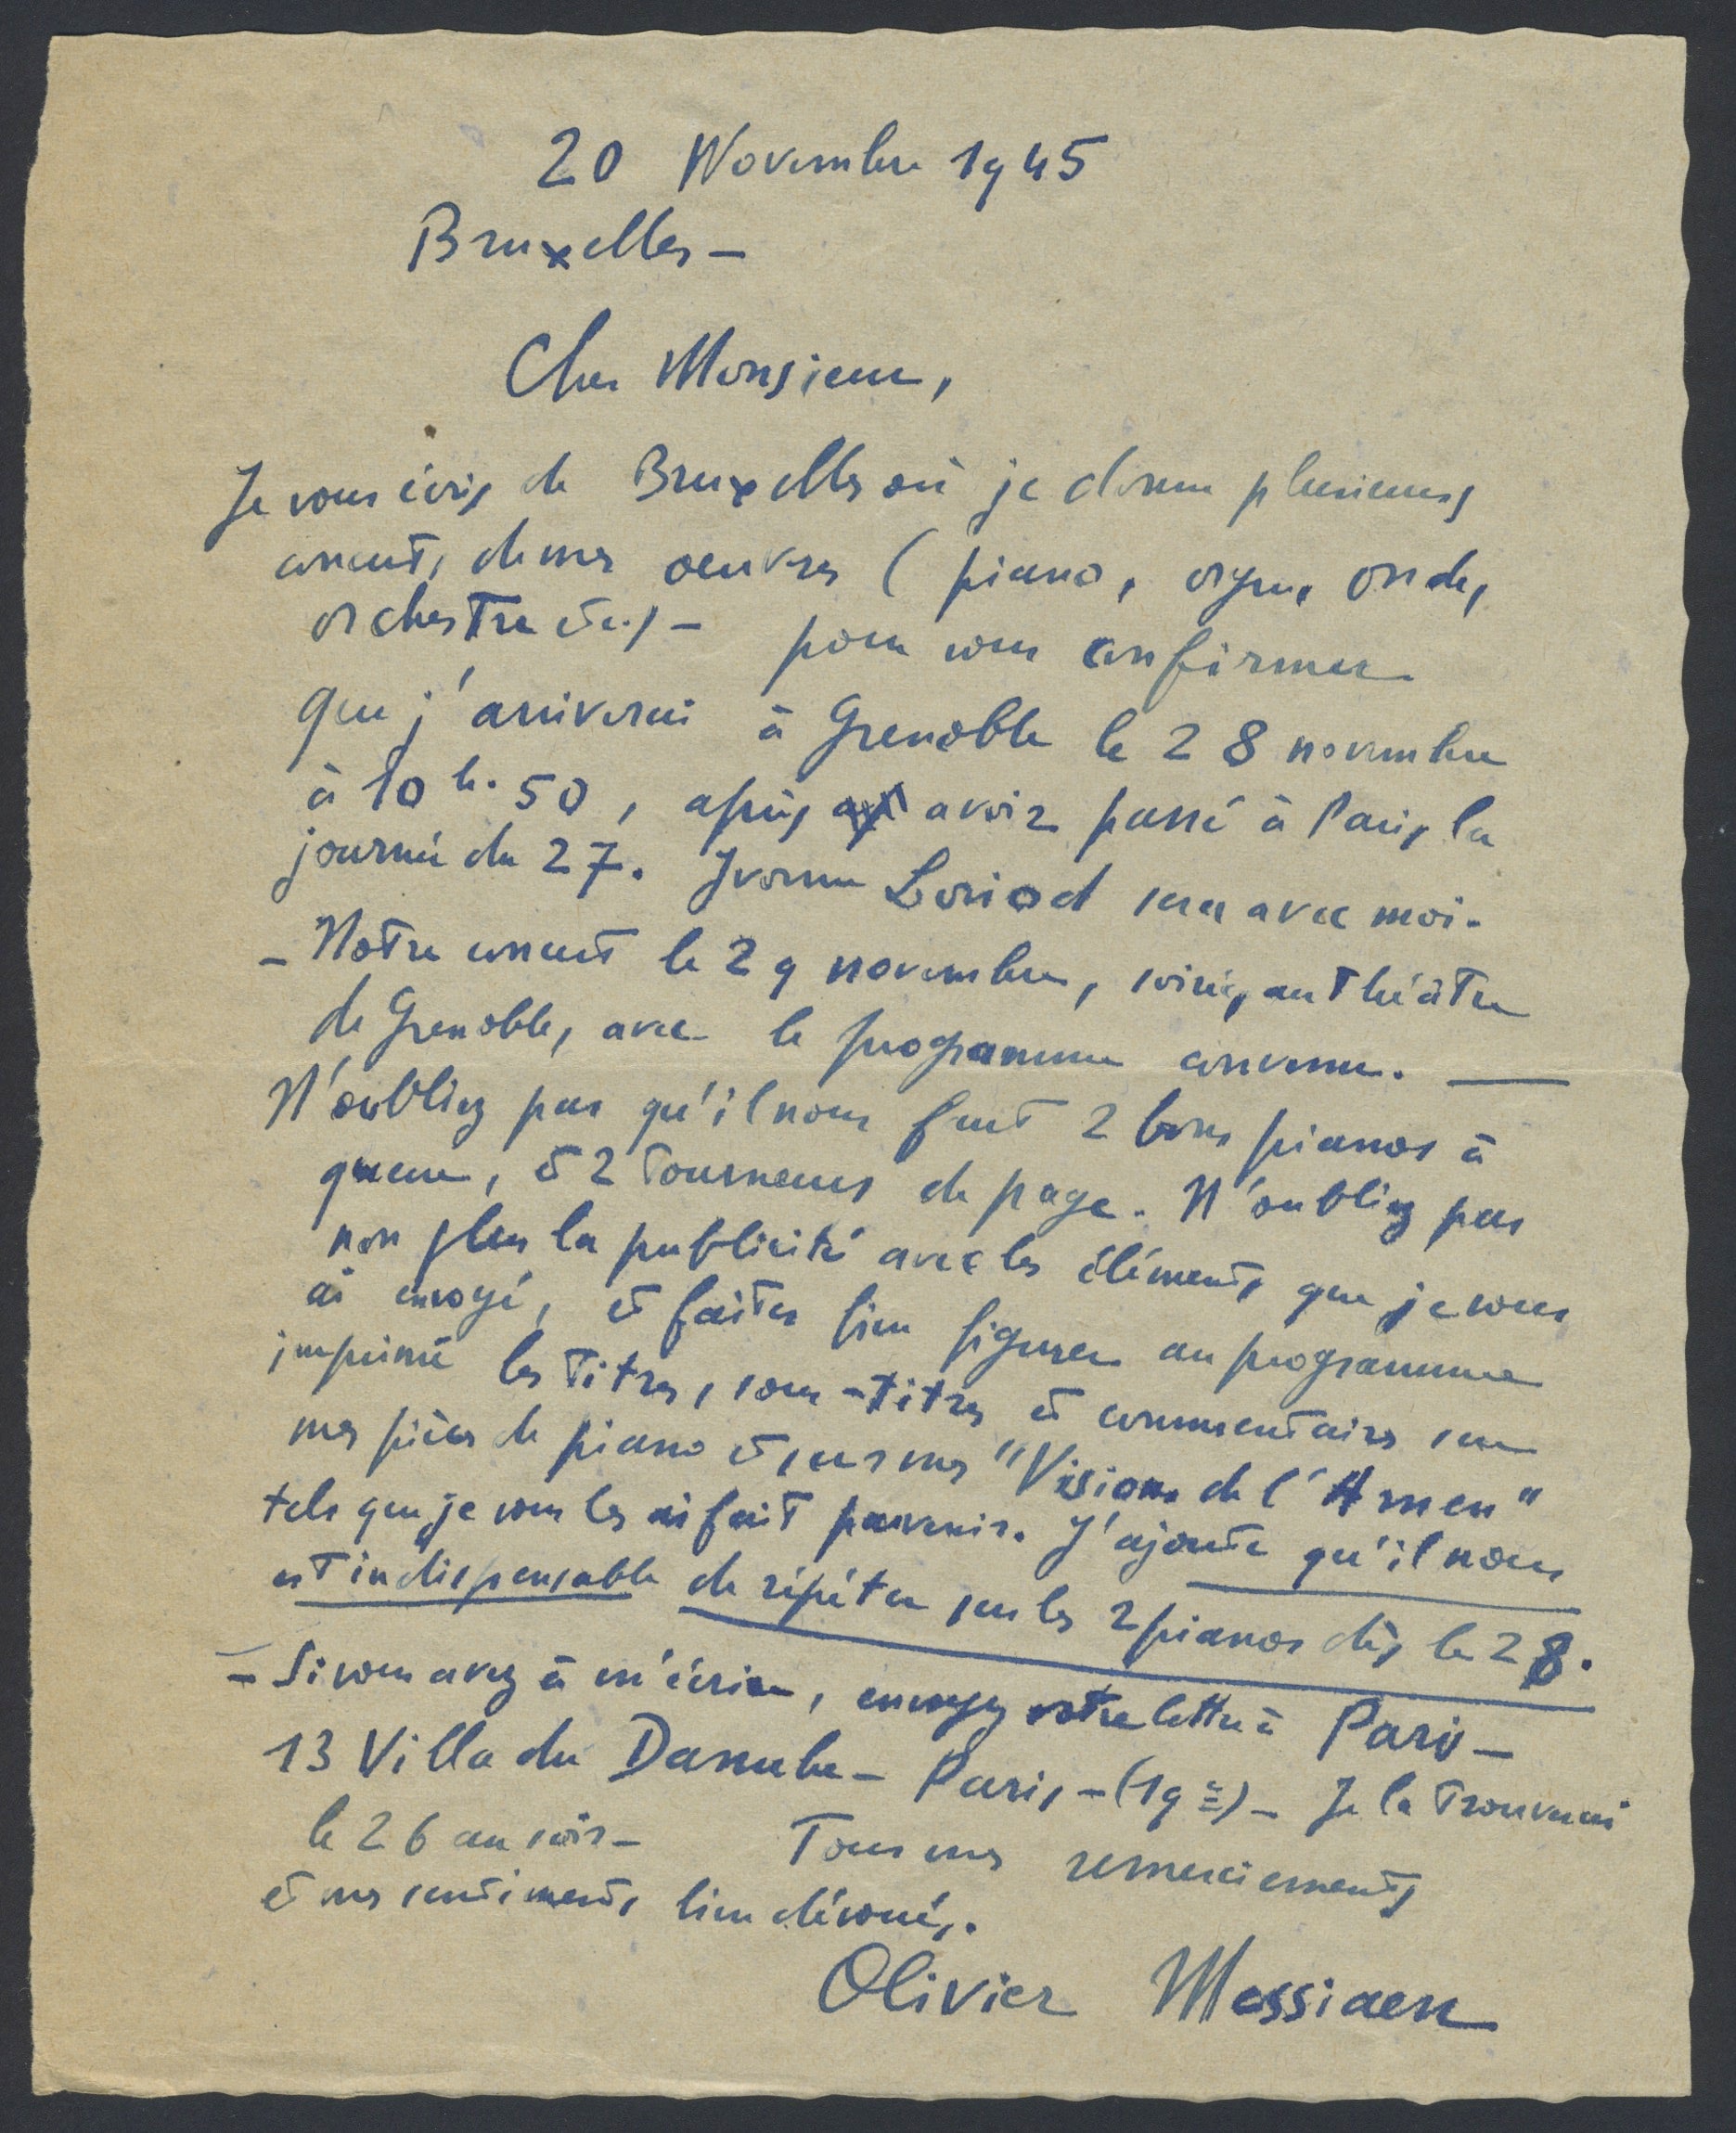 20 Novembre 1945
Bruxelles –
Cher Monsieur,
Je vous écris de Bruxelles où je donne plusieurs
concerts de mes oeuvres (piano, orgue, onde,
orchestre etc.) – pour vous confirmer
que j'arriverai à Grenoble le 28 novembre
à 10 h. 50, après avoir passé à Paris la
journée du 27. Yvonne Loriod sera avec moi.
– Notre concert le 29 novembre, soirée, au Théâtre
de Grenoble, avec le programme convenu. —
N'oubliez pas qu'il nous faut 2 bons pianos à
queue, et 2 tourneurs de page. N'oubliez pas
non plus la publicité avec les éléments que je vous
ai envoyé, et faites bien figurer au programme
imprimé les titres, sous-titres et commentaires sur
mes pièces de piano et sur mes "Visions de l'Amen"
tels que je vous les ai fait parvenir. J'ajoute qu'il nous
est indispensable de répéter sur les 2 pianos dès le 28.
– Si vous avez à m'écrire, envoyez votre lettre à Paris –
13 Villa du Danube – Paris – (19e) – Je la trouverai
le 26 au soir – Tous mes remerciements
et mes sentiments bien dévoués.
Olivier Messiaen